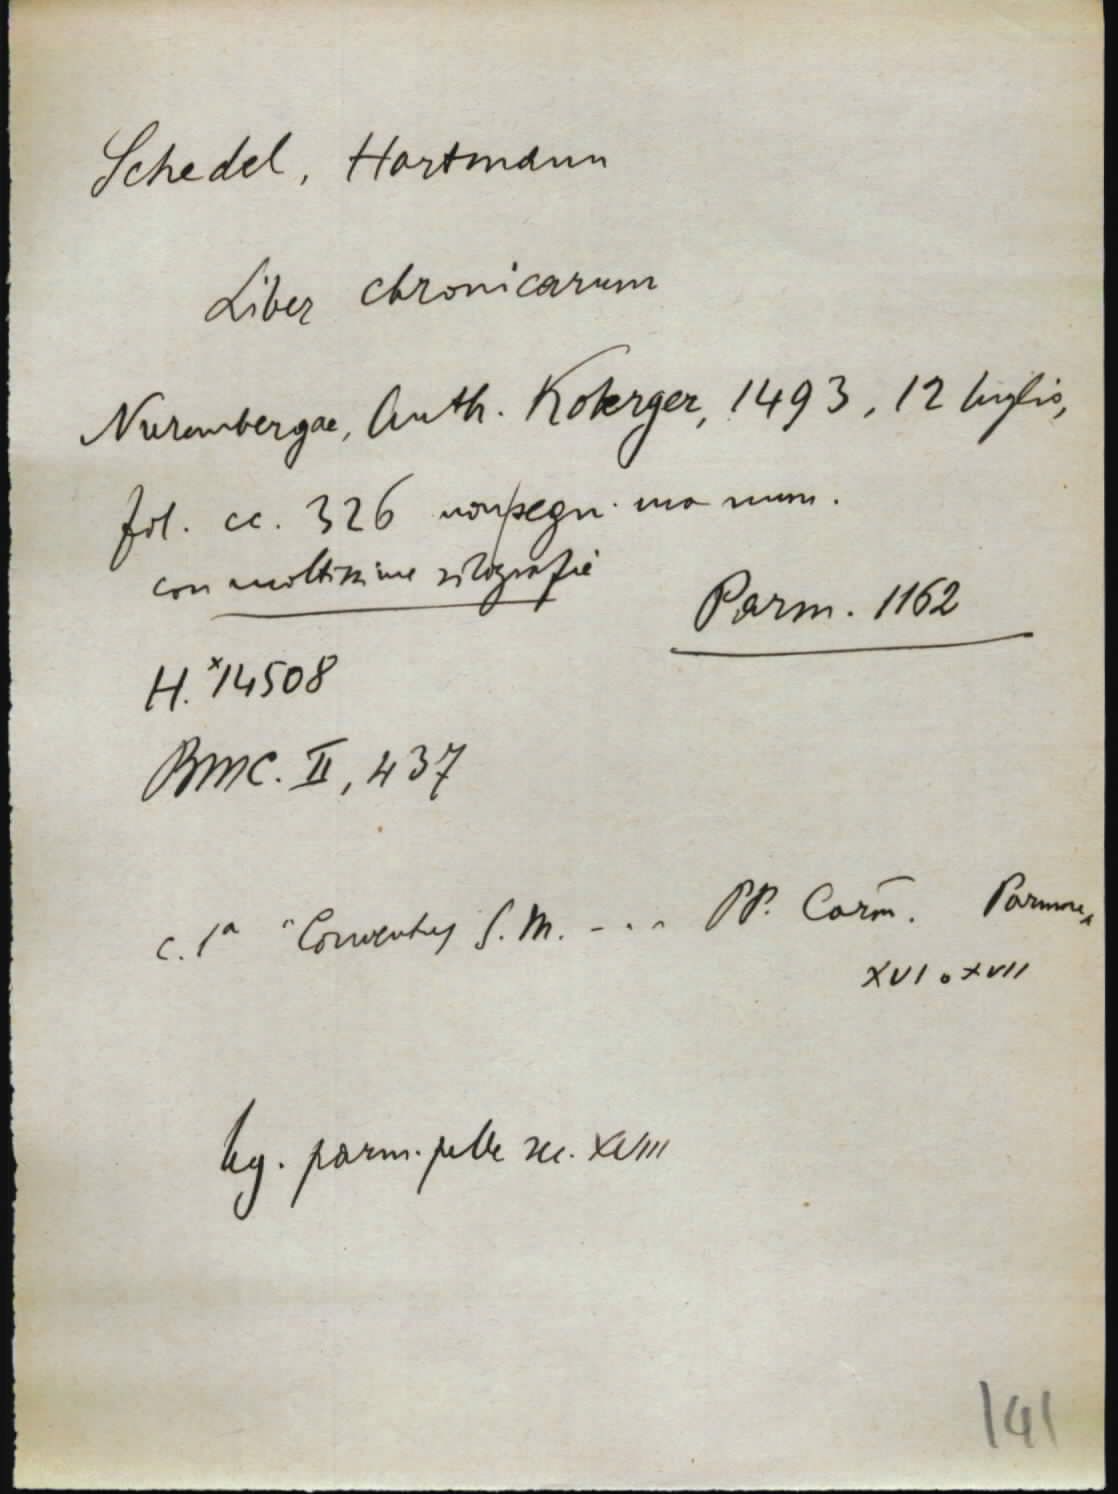 Schedel, Hartmann
Liber chronicarum
Nurembergae, Anth. Koberger, 1493, 12 luglio,
fol. cc. 326 non segn. ma num.
con moltissime xilografie
Parm. 1162
H.*14508
BMC. II, 437
c. 1a "Conventus S. M. - - - PP. Carm. Parmae"
XVI o XVII
leg. parm. pelle sec. XVIII
141